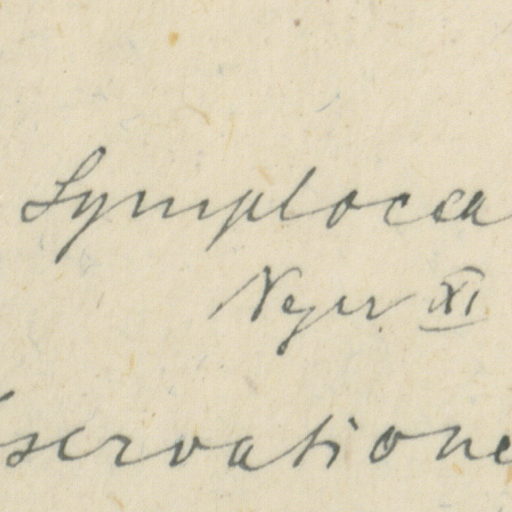 Symplocca
XI
servatione